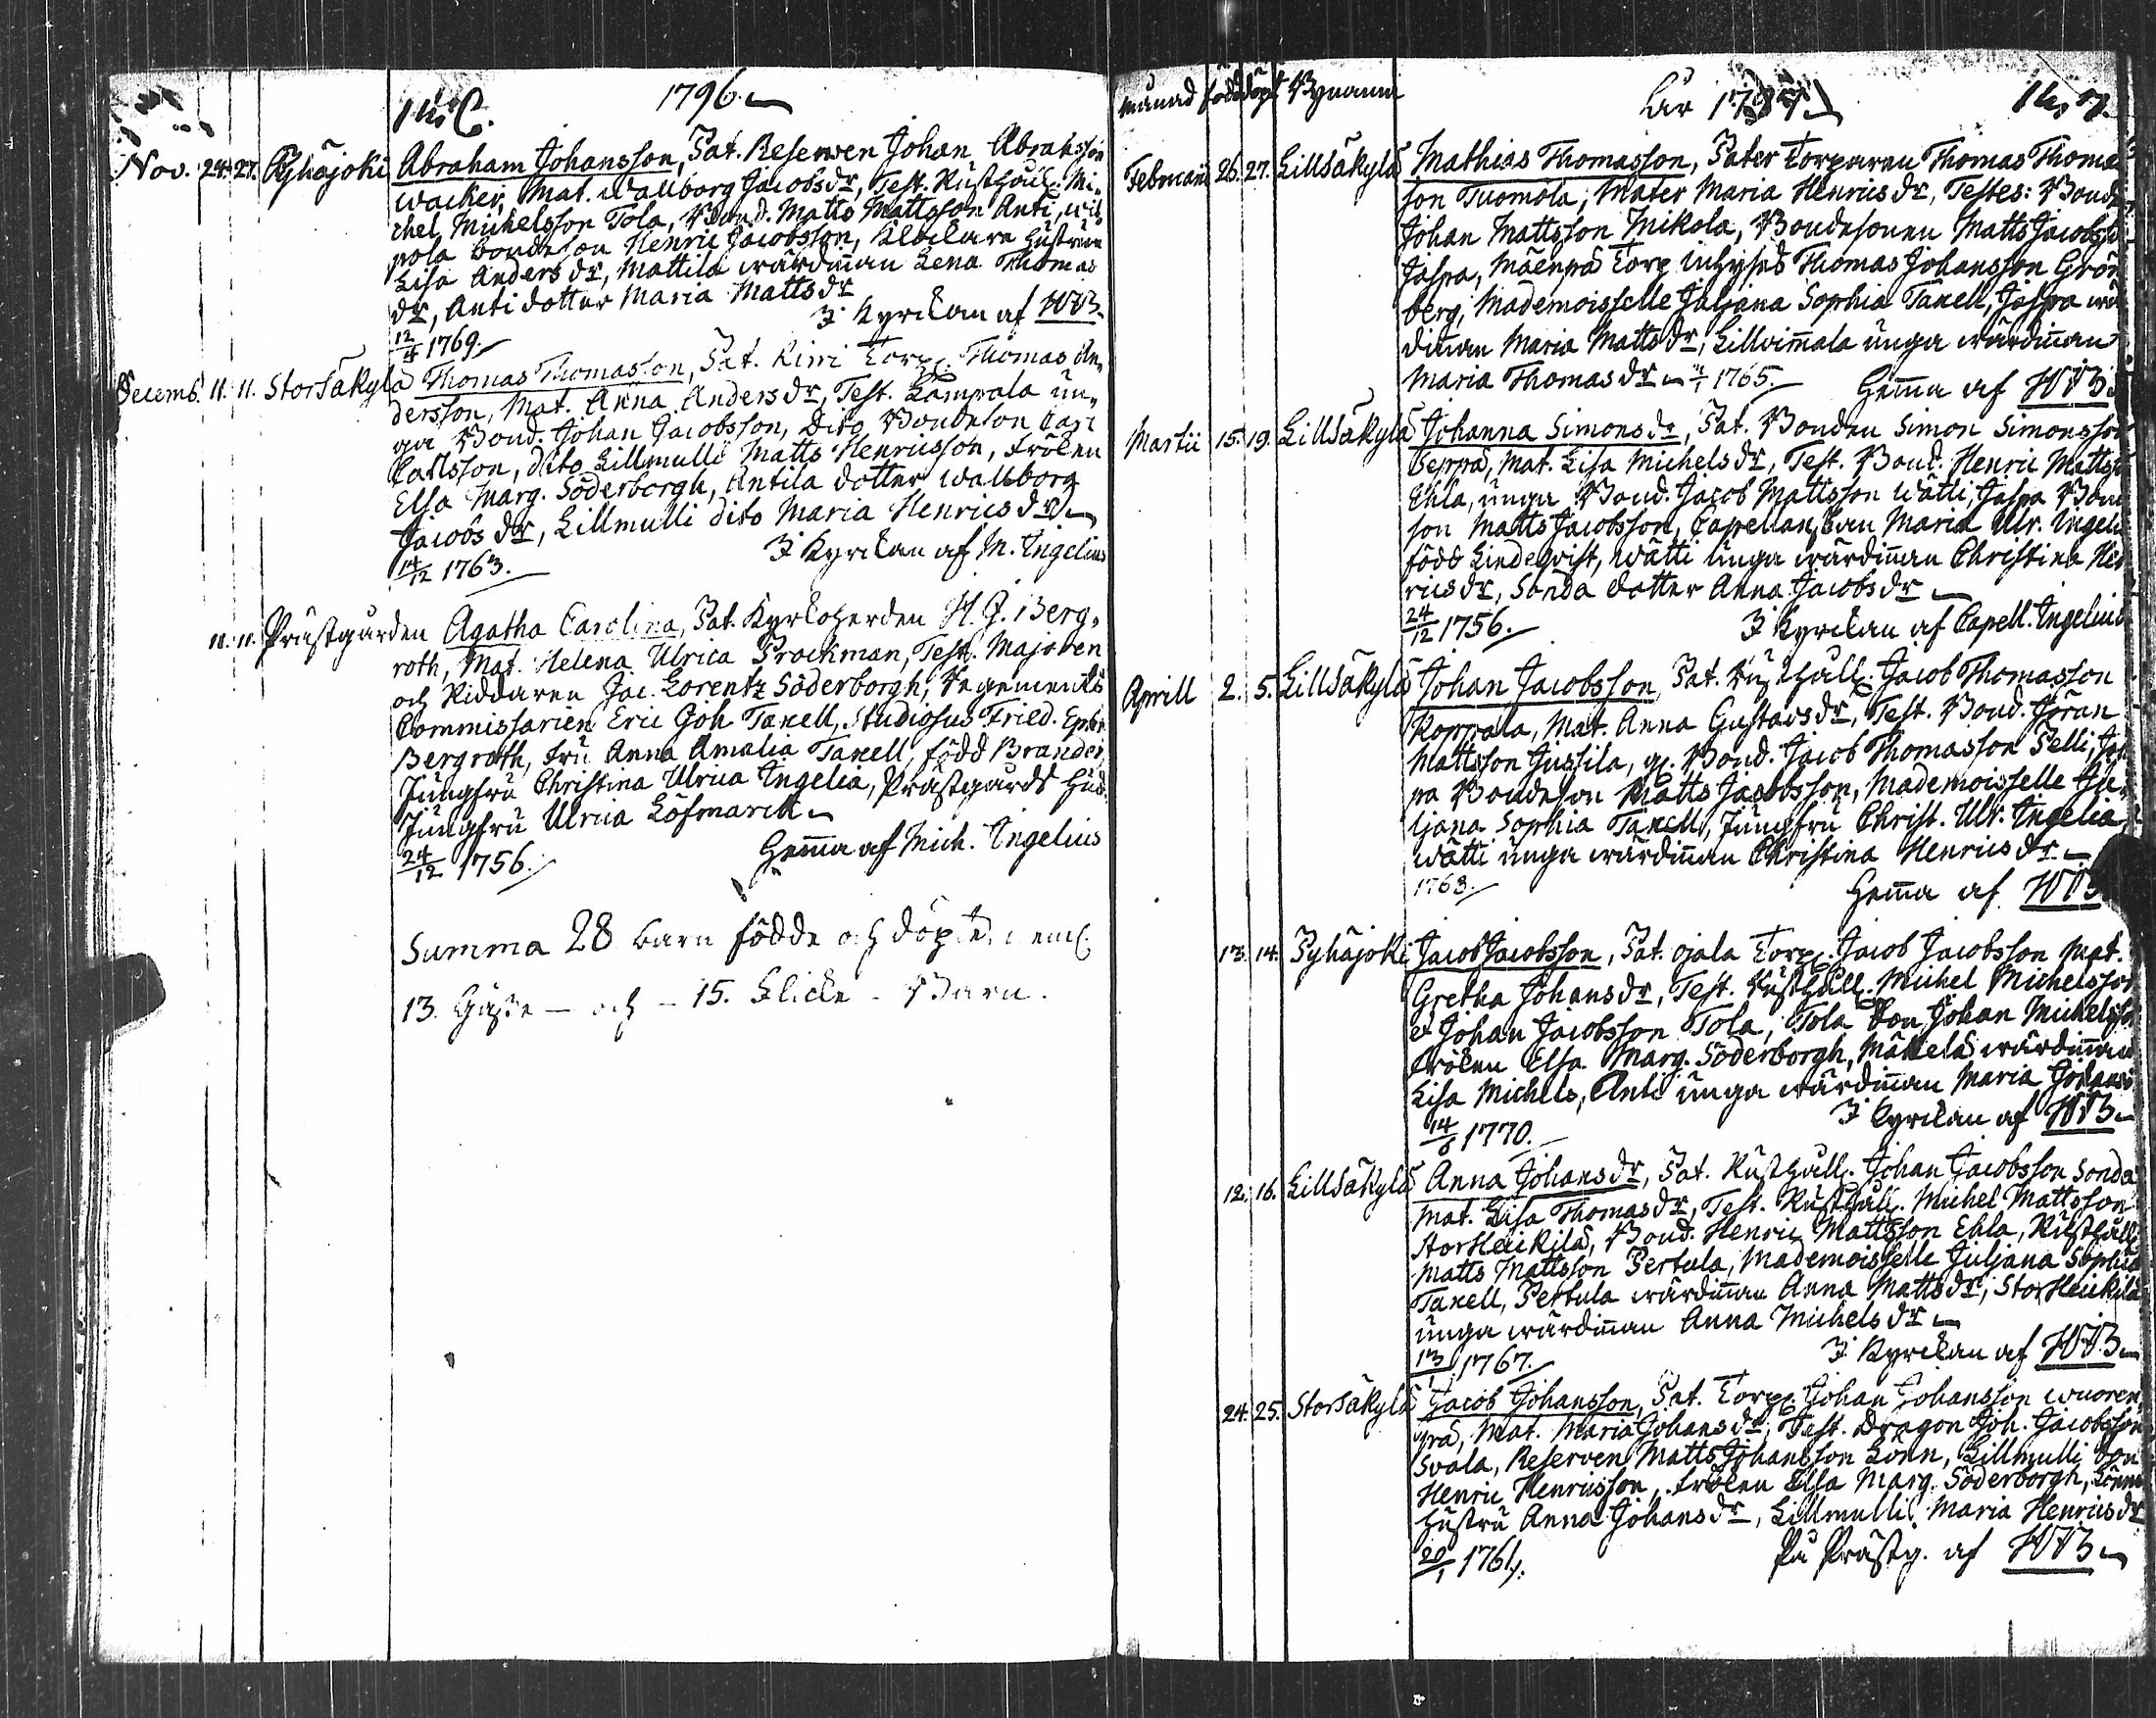 1796.
Nov. 24. 27. Pyhäjoki Abraham Johansson, Pat. Reserven Johan Abrahsson
Wacker, Mat. Wallborg Jacobs dr, Test. Rusthåll. Mi-
chel Michelsson Tola, Bond. Matts Mattsson Anti, wil
pola bondeson Henric Jacobsson, Klockare hustrun
Lisa Anders dr, Mattila wärdinnan Lena Thomas
dr, Anti dotter Maria Matts dr
12/4 1769. I Kyrckan af HJB
Decemb. 11. 11. StorSäkylä Thomas Thomasson, Pat. Kirri Torp. Thomas An-
dersson, Mat. Anna Anders dr, Test. Lampala un-
ga Bond. Johan Jacobsson, Dito Bondeson Carl
Carlsson, dito Lillmulli Matts Henricsson, Frölen
Elsa Marg. Söderborgh, Antila dotter Wallborg
Jacobs dr, Lillmulli dito Maria Henrics dr
14/12 1763. I Kyrckan af M. Ingelius
11. 11. Prästgården Agatha Carolina, Pat. Kyrkoherden H. J. Berg-
roth, Mat. Helena Ulrica Prockman, Test. Majoren
och Riddaren Jac. Lorentz Söderborgh, Regements
Commissarien Eric Joh Tanell, Studiosus Fried. Ephr.
Bergroth, fru Anna Amalia Tanell, född Brander,
Jungfru Christina Ulrica Ingelia, Prästgårds Hus
Jungfru Ulrica Löfmarck
24/12 1756. Hemma af Mich. Ingelius
Summa 28 barn födde och döpte, neml.
13. Gåsse - och - 15. Flicke - Barn.
månad född döpt Bynamn År 1797
Februarii 26. 27. LillSäkylä Mathias Thomasson, Pater Torparen Thomas Thoma
son Tuomola, Mater Maria Henrics dr, Testes: Bond
Johan Mattsson Mikola, Bondesonen Matts Jacobsso
Jaspa, Mäenpä Torp inhyses Thomas Johansson Grön
berg, Mademoisselle Juljana Sophia Tanell, Jaspa wär
dinnan Maria Matts dr, Lilloimala unga wärdinnan
Maria Thomas dr 1765. Hemma af HJB
Martii 15. 19. LillSäkylä Johanna Simons dr, Pat. Bonden Simon Simonsson
Seppä, Mat. Lisa Michels dr, Test. Bond. Henric Mattsso
Ehla, unga Bond. Jacob Mattsson Wätti, Jaspa Bond
son Matts Jacobsson, Capellans Fru Maria Ulr. Ingeli
född Lindeqvist, Wätti unga wärdinnan Christina Hen
rics dr, Sonda dotter Anna Jacobs dr
24/12 1756. I Kyrckan af Capell. Ingelius
Aprill 2. 5. LillSäkylä Johan Jacobsson, Pat. Rusthåll. Jacob Thomasson
Koppala, Mat. Anna Gustavs dr, Test. Bond. Jöran
Mattsson Jussila, g. Bond. Jacob Thomasson Pelli, Jas
pa Bondeson Matts Jacobsson, Mademoisselle Ju-
ljana Sophia Tanell, Jungfru Christ. Ulr. Ingelia
Wätti unga wärdinnan Christina Henrics dr
1763. Hemma af HJB
13. 14. Pyhäjoki Jacob Jacobsson, Pat. Ojala Torp. Jacob Jacobsson Mat.
Gretha Johans dr, Test. Rusthåll. Michel Michelsson
et Johan Jacobsson Tola, Tola Son Johan Michelsson
Frölen Elsa Marg. Söderborgh, Mäkelä wärdinnan
Lisa Michels, Anti unga wärdinnan Maria Johans
14/6 1770. I Kyrckan af HJB
12. 16. LillSäkylä Anna Johans dr, Pat. Rusthåll. Johan Jacobsson Sonda
Mat. Lisa Thomas dr, Test. Rusthåll. Michel Mattsson
StorHeickilä, Bond. Henric Mattsson Ehla, Rusthåll
Matts Mattsson Pertula, Mademoisselle Juljana Sophia
Tanell, Pertula wärdinnan Anna Matts dr, StorHeickilä
unga wärdinnan Anna Michels dr
1767. I Kyrckan af HJB
24. 25. StorSäkylä Jacob Johansson, Pat. Torp. Johan Johansson Wuoren
pä, Mat. Maria Johans dr, Test. Dragon Joh. Jacobsson
Svala, Reserven Matts Johansson Lönn, Lillmulli Son
Henric Henricsson, Frölen Elsa Marg. Söderborgh, Lönns
hustru Anna Johans dr, Lillmulli Maria Henrics dr
20/1 1761. På Prästg. af HJB